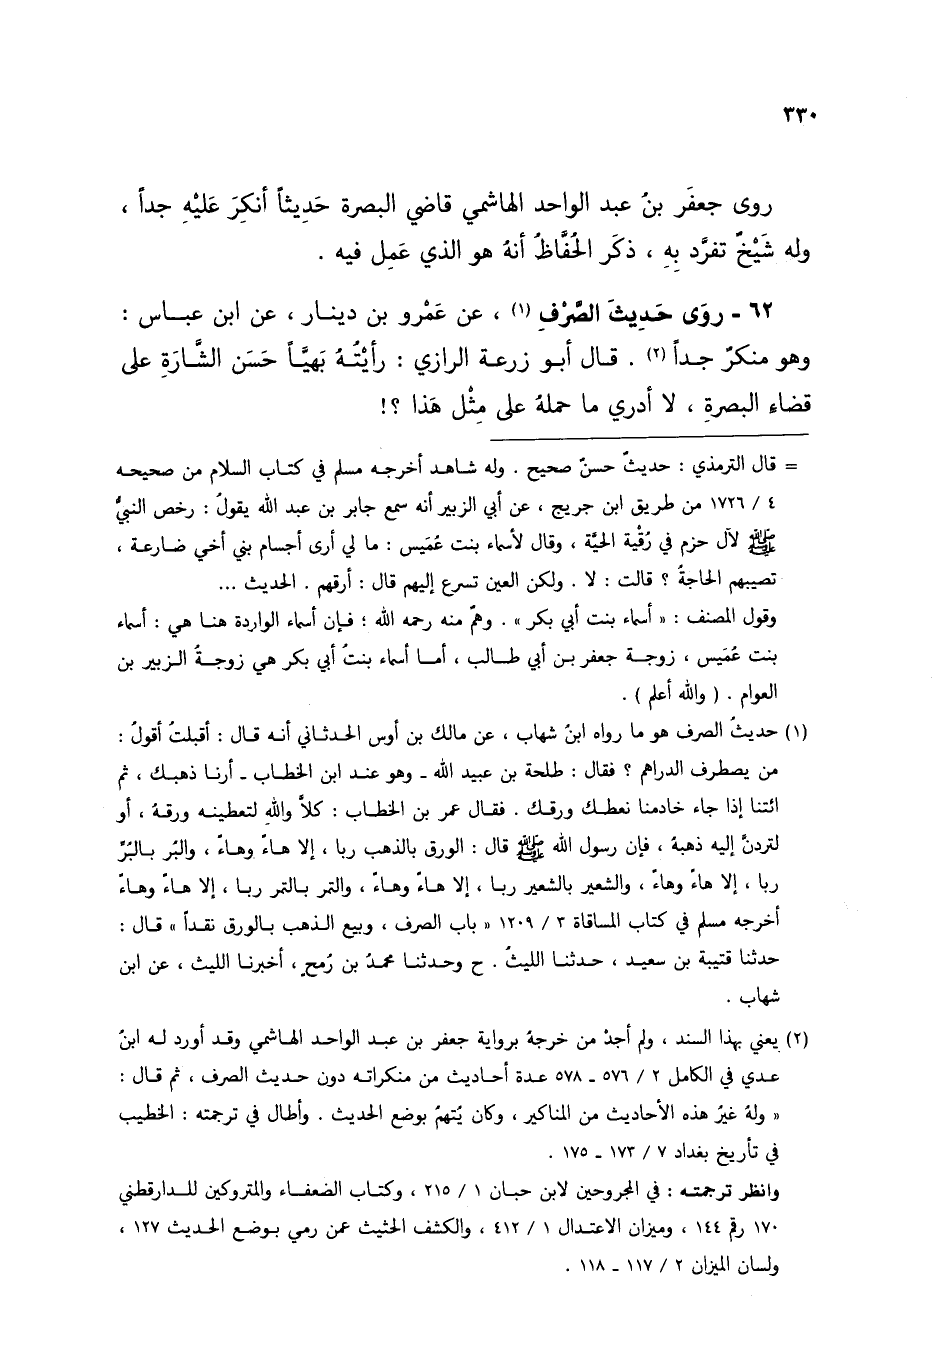 ٣٣٠
روى جعفَر بنُ عبد الواحد الهاشمي قاضي البصرة حَدِيثاً أنكِرَ عَلَيْهِ جداً ،
وله شَيْخٌ تفرَّد بِهِ ، ذكَر الحُفَّاظُ أنهُ هو الذي عَمِل فيه .
٦٢ - روَى حَدِيثَ الصَّرْفِ (١) ، عن عَمْرو بن دينار ، عن ابن عباس :
وهو منكرٌ جداً (٢) . قال أبو زرعة الرازي : رأيْتُهُ بَهيَّاً حَسَن الشَّارَةِ على
قضاء البصرةِ ، لا أدري ما حملهُ على مِثْل هَذا ؟!
= قال الترمذي : حديثٌ حسنٌ صحيح . وله شاهد أخرجه مسلم في كتاب السلام من صحيحه
٤ / ١٧٢٦ من طريق ابن جريج ، عن أبي الزبير أنه سمع جابر بن عبد الله يقولُ : رخص النبيُّ
ﷺ لآل حزم في رُقْية الحيَّة ، وقال لأسماء بنت عُمَيس : ما لي أرى أجسام بني أخي ضارعة ،
تصيبهم الحاجةُ ؟ قالت : لا . ولكن العين تسرع إليهم قال : أرقهم . الحديث ...
وقول المصنف : « أسماء بنت أبي بكر » . وهمٌ منه رحمه الله ؛ فإن أسماء الواردة هنا هي : أسماء
بنت عُمَيس ، زوجة جعفر بن أبي طالب ، أما أسماء بنتُ أبي بكر هي زوجةُ الزبير بن
العوام . ( والله أعلم ) .
(١) حديثُ الصرف هو ما رواه ابنُ شهاب ، عن مالك بن أوس الحدثاني أنه قال : أقبلتُ أقولُ :
من يصطرف الدراهم ؟ فقال : طلحة بن عبيد الله - وهو عند ابن الخطاب - أرنا ذهبك ، ثم
ائتنا إذا جاء خادمنا نعطك ورقك . فقال عمر بن الخطاب : كلاَّ واللهِ لتعطينه ورقهُ ، أو
لتردنَّ إليه ذهبهُ ، فإن رسول الله ﷺ قال : الورق بالذهب ربا ، إلا هاءً وهاءً ، والبُر بالبُرِّ
ربا ، إلا هاءً وهاءً ، والشعير بالشعير ربا ، إلا هاءً وهاءً ، والتمر بالتمر ربا ، إلا هاءً وهاءً
أخرجه مسلم في كتاب المساقاة ٣ / ١٢٠٩ « باب الصرف ، وبيع الذهب بالورق نقداً » قال :
حدثنا قتيبة بن سعيد ، حدثنا الليثُ . ح وحدثنا محمدُ بن رُمحٍ ، أخبرنا الليث ، عن ابن
شهاب .
(٢) يعني بهذا السند ، ولم أجدْ من خرجهُ برواية جعفر بن عبد الواحد الهاشمي وقد أورد له ابنُ
عدي في الكامل ٢ / ٥٧٦ - ٥٧٨ عدة أحاديث من منكراته دون حديث الصرف ، ثم قال :
« ولهُ غيرُ هذه الأحاديث من المناكير ، وكان يُتهمُ بوضع الحديث . وأطال في ترجمته : الخطيب
في تأريخ بغداد ٧ / ١٧٣ - ١٧٥ .
وانظر ترجمته : في المجروحين لابن حبان ١ / ٢١٥ ، وكتاب الضعفاء والمتروكين للدارقطني
١٧٠ رقم ١٤٤ ، وميزان الاعتدال ١ / ٤١٢ ، والكشف الحثيث عمن رمي بوضع الحديث ١٢٧ ،
ولسان الميزان ٢ / ١١٧ - ١١٨ .